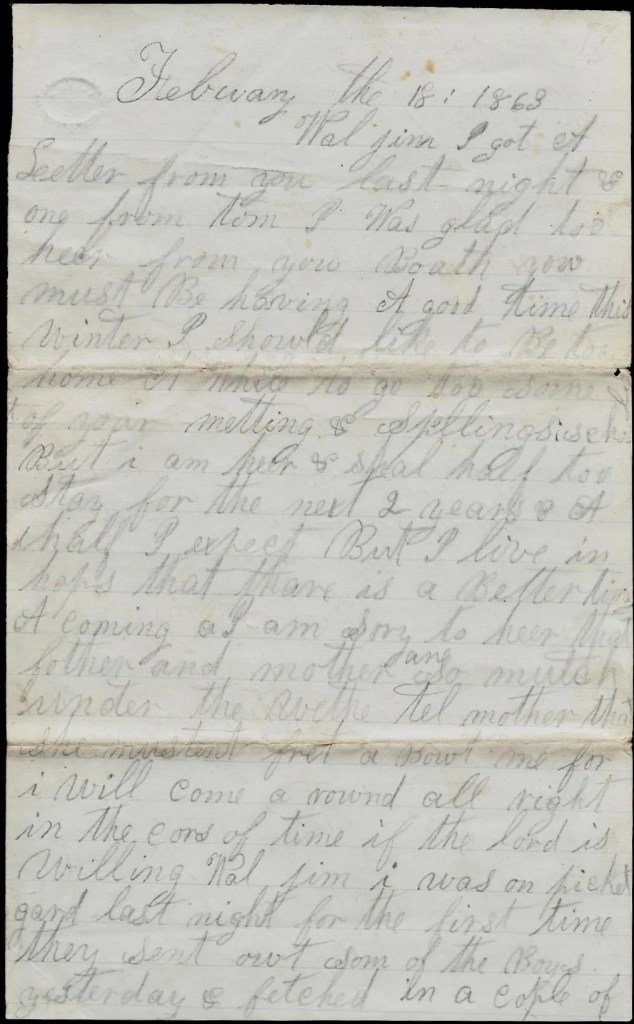 Febuary the 18: 1863
Wal jim I got A
Leetter from you last night &
one from tom I Was glad too
heer from you Boath you
must Be having A good time this
Winter I should like to Be too
home A while to go too some
of your metting & Spellings scho
But i am heer & shal half too
stay for the next 2 years & A
half I expect But I live in
hops that thare is a Better time
A coming a I am sory to heer that
father and mother are so mutch
under the Wethe tel mother that
she mustent fret a Bowt me for
i Will come a round all right
in the cors of time if the lord is
Willing Wal jim i was on picket
gard last night for the first time
they sent owt som of the Boys
yesterday & fetched in a cople of